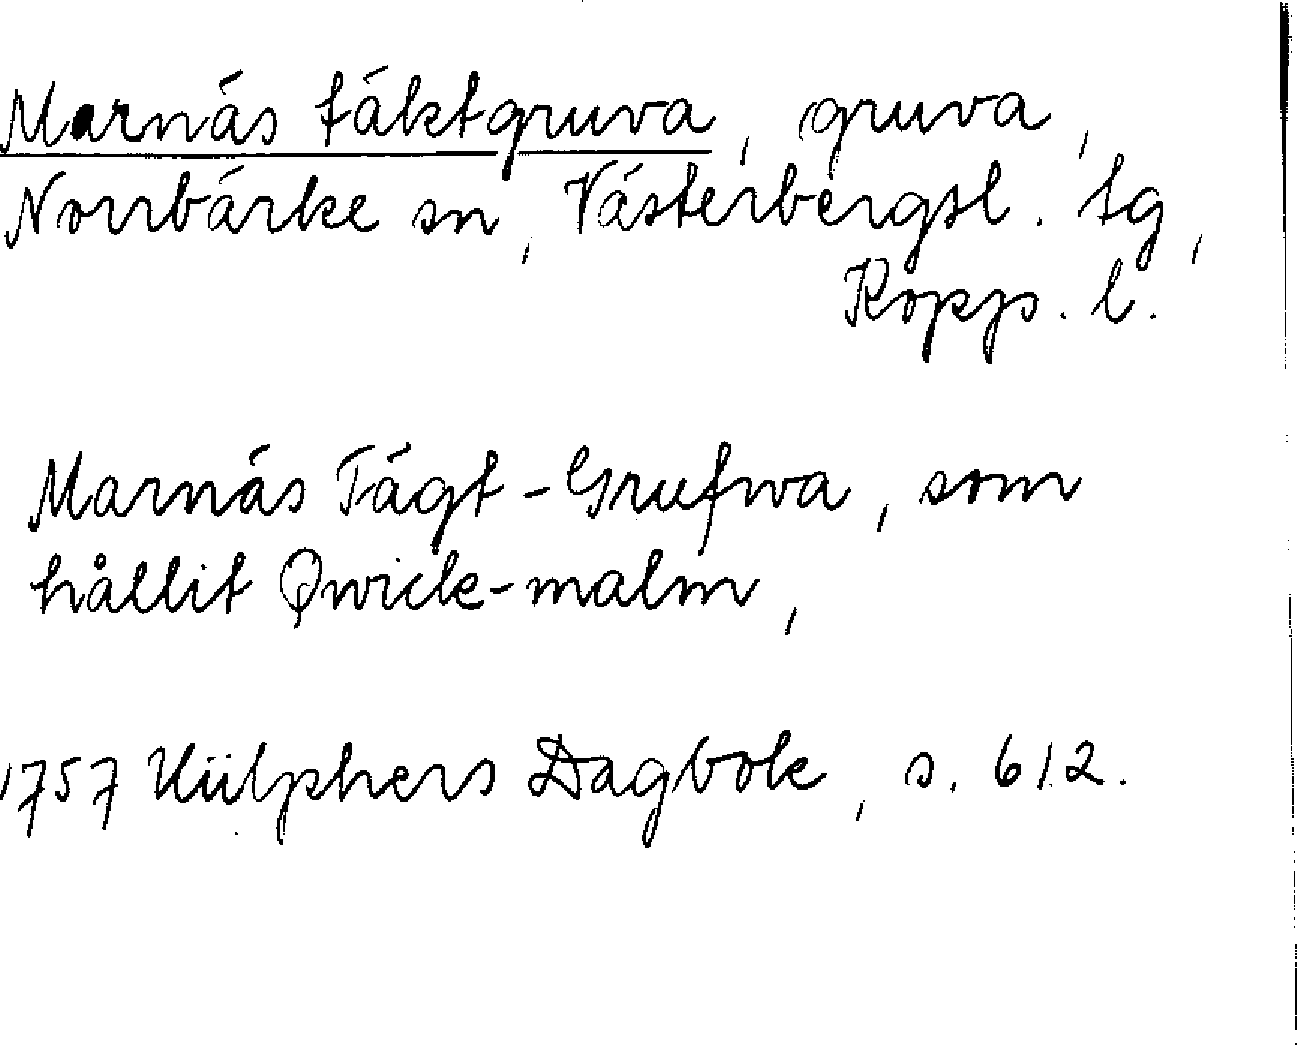 Marnäs täktgruva, gruva,
Norrbärke sn, Västerbergsl. tg,
Kopps. l.
Marnäs Tägt-Grufwa, som
hållit Qwick-malm,
1757 Hülphers Dagbok, s. 612.